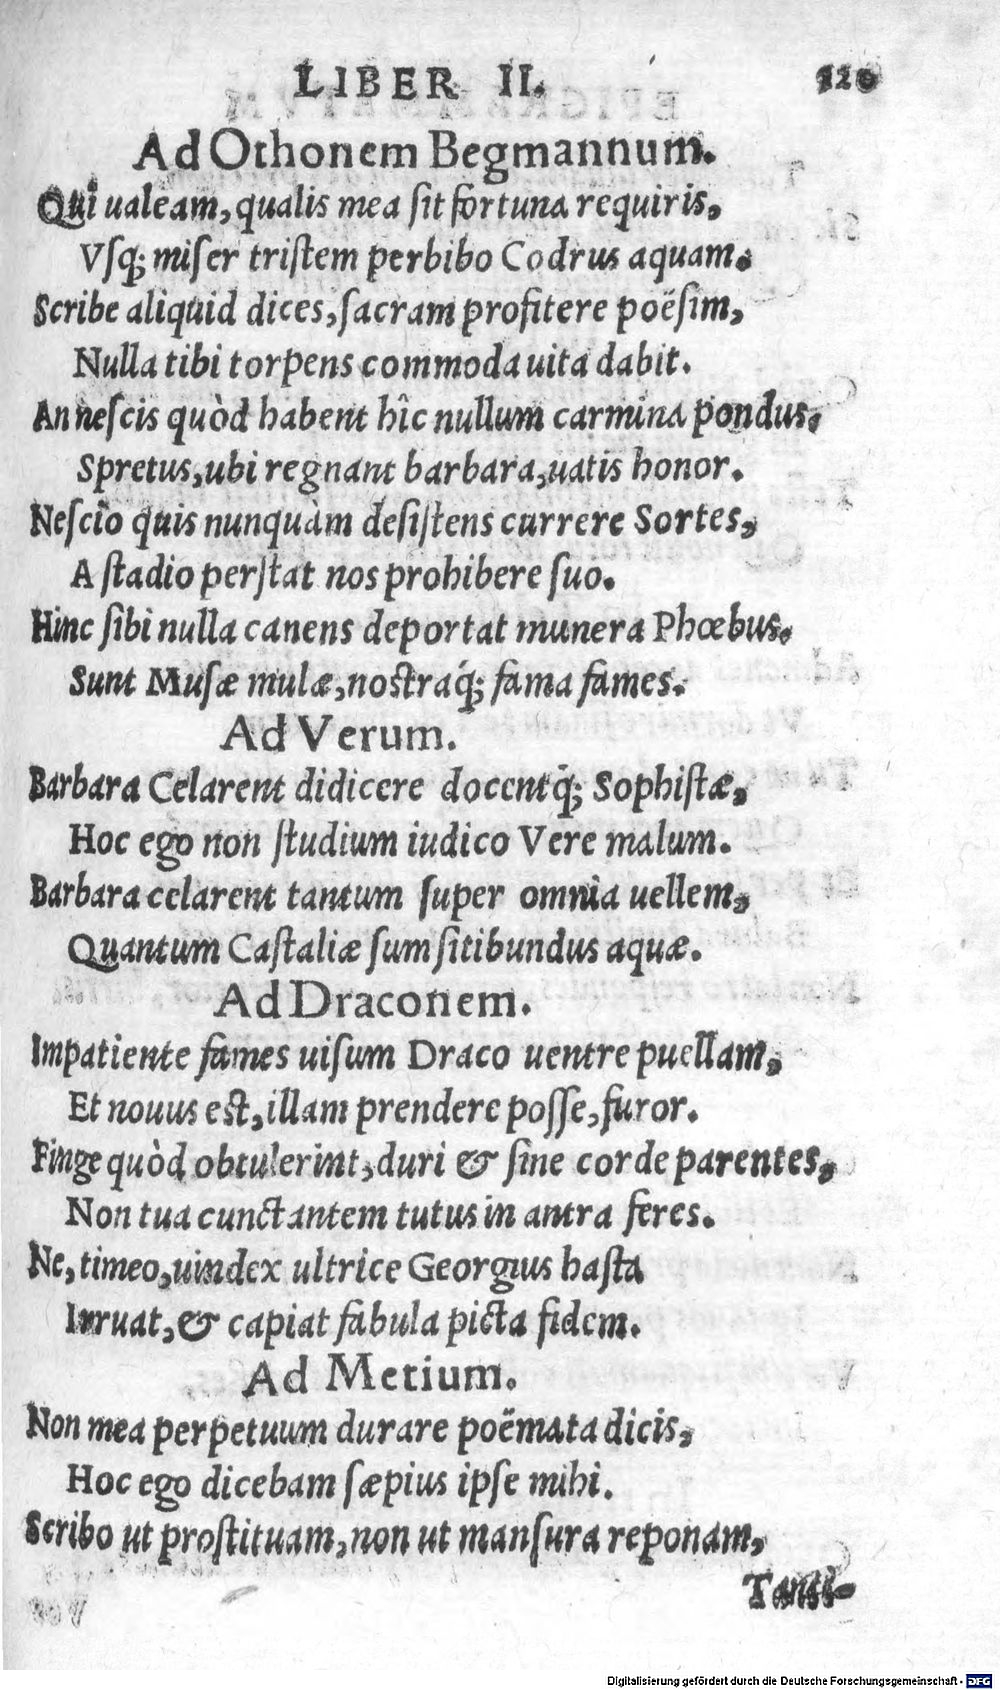 LIBER II. 120
Ad Othonem Begmannum.
Qui ualeam, qualis mea sit fortuna requiris,
Vsq; miser tristem perbibo Codrus aquam.
Scribe aliquid dices, sacram profitere poësim,
Nulla tibi torpens commoda uita dabit.
An nescis quòd habent hîc nullum carmina pondus,
Spretus, ubi regnant barbara, uatis honor.
Nescio quis nunquàm desistens currere Sortes,
A stadio perstat nos prohibere suo.
Hinc sibi nulla canens deportat munera Phœbus.
Sunt Musæ mulæ, nostraq́; fama fames.
Ad Verum.
Barbara Celarent didicere docentq́; Sophistæ,
Hoc ego non studium iudico Vere malum.
Barbara celarent tantum super omnia uellem,
Quantum Castaliæ sum sitibundus aquæ.
Ad Draconem.
Impatiente fames uisum Draco uentre puellam,
Et nouus est, illam prendere posse, furor.
Finge quòd obtulerint, duri & sine corde parentes,
Non tua cunctantem tutus in antra feres.
Ne, timeo, uindex ultrice Georgius hasta
Irruat, & capiat fabula picta fidem.
Ad Metium.
Non mea perpetuum durare poëmata dicis,
Hoc ego dicebam sæpius ipse mihi.
Scribo ut prostituam, non ut mansura reponam,
Tanti-
Digitalisierung gefördert durch die Deutsche Forschungsgemeinschaft - DFG